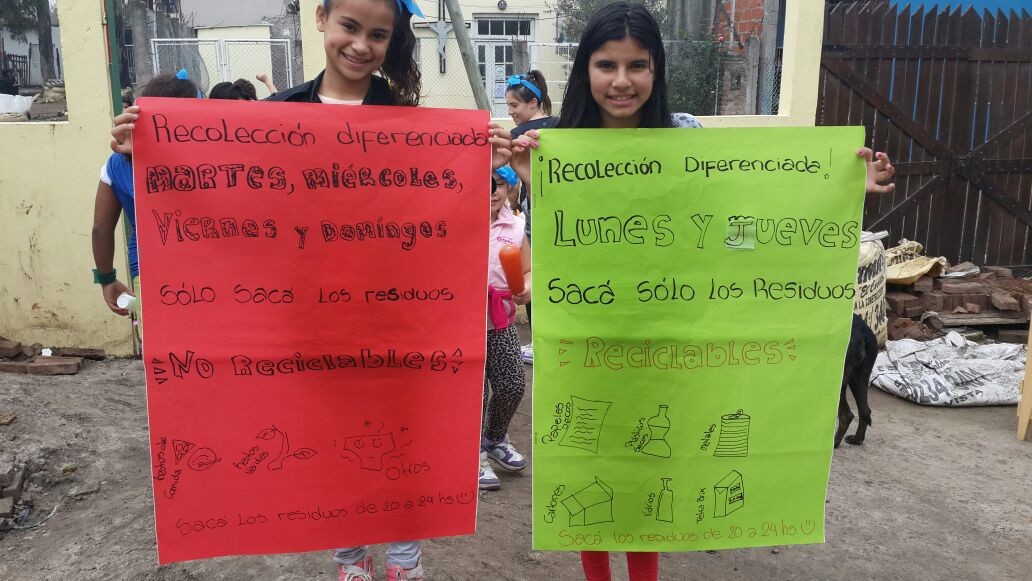 Recolección diferenciada
Martes, Miércoles,
Viernes y Domingos
Sólo Sacá los residuos
"No Reciclables"
Restos de Comida
Restos Verdes
Otros
Sacá los residuos de 20 a 24 hs
¡Recolección Diferenciada!
Lunes y Jueves
Sacá sólo los Residuos
Reciclables
Papeles Secos
Plásticos secos
Metales
Cartones
Vidrios
Tetra Brik
Sacá los residuos de 20 a 24 hs